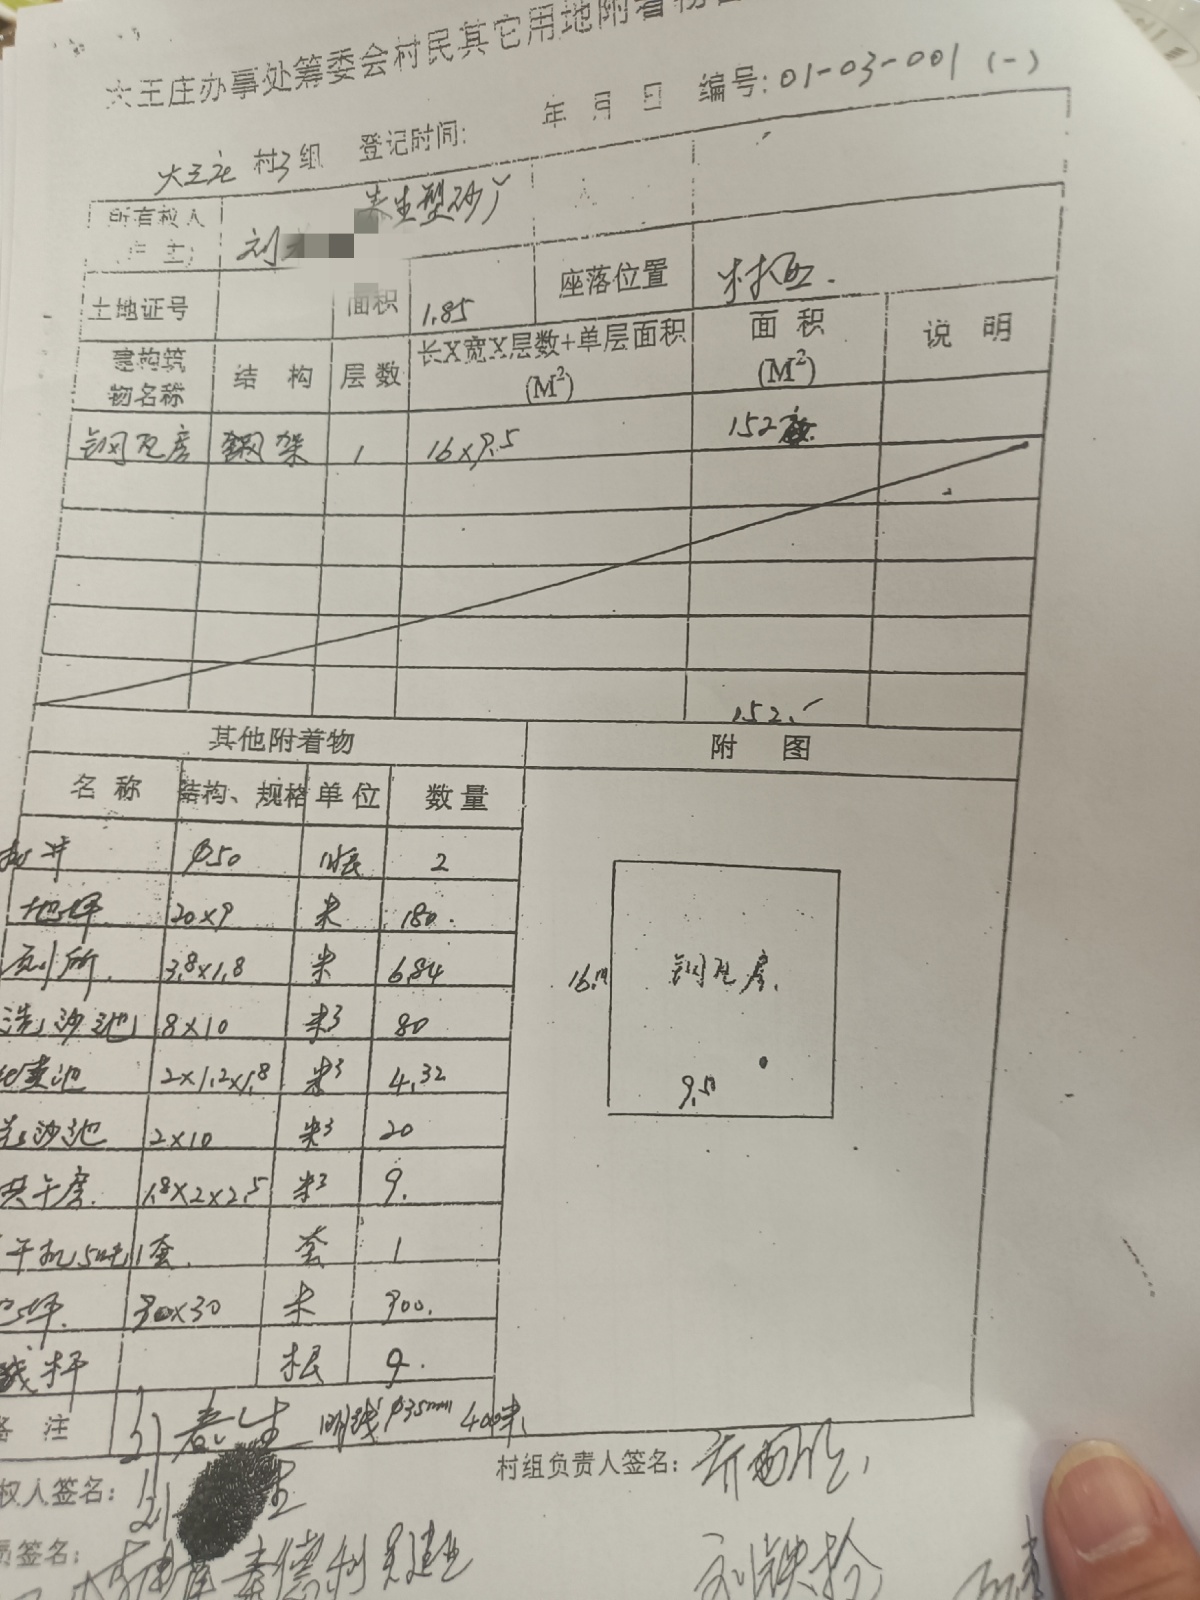 大王庄办事处筹委会村民其它用地附着物
大王庄 村3组 登记时间: 年 月 日 编号: 01-03-001 (一)
所有权人 刘 春生型砂厂
土地证号 面积 1.85 座落位置 村西.
建构筑物名称 结构 层数 长X宽X层数+单层面积 (M²) 面积 (M²) 说明
钢瓦房 钢架 1 16×9.5 152
152.
其他附着物 附图
名称 结构、规格 单位 数量
井 φ50 眼 2
地坪 20×9 米 180.
厕所. 3.8×1.8 米 6.84
洗沙池 8×10 米3 80
池 2×1.2×1.8 米3 4.32
沙池 2×10 米3 20
房. 1.8×2×2.5 米3 9.
干机5吨1套. 套 1
坪. 30×30 米 900.
线杆 根 9.
钢瓦房.
16.
9.50
备注 刘春生 明线φ35mm 400米.
权人签名: 刘 生 村组负责人签名:
员签名:
秦德利